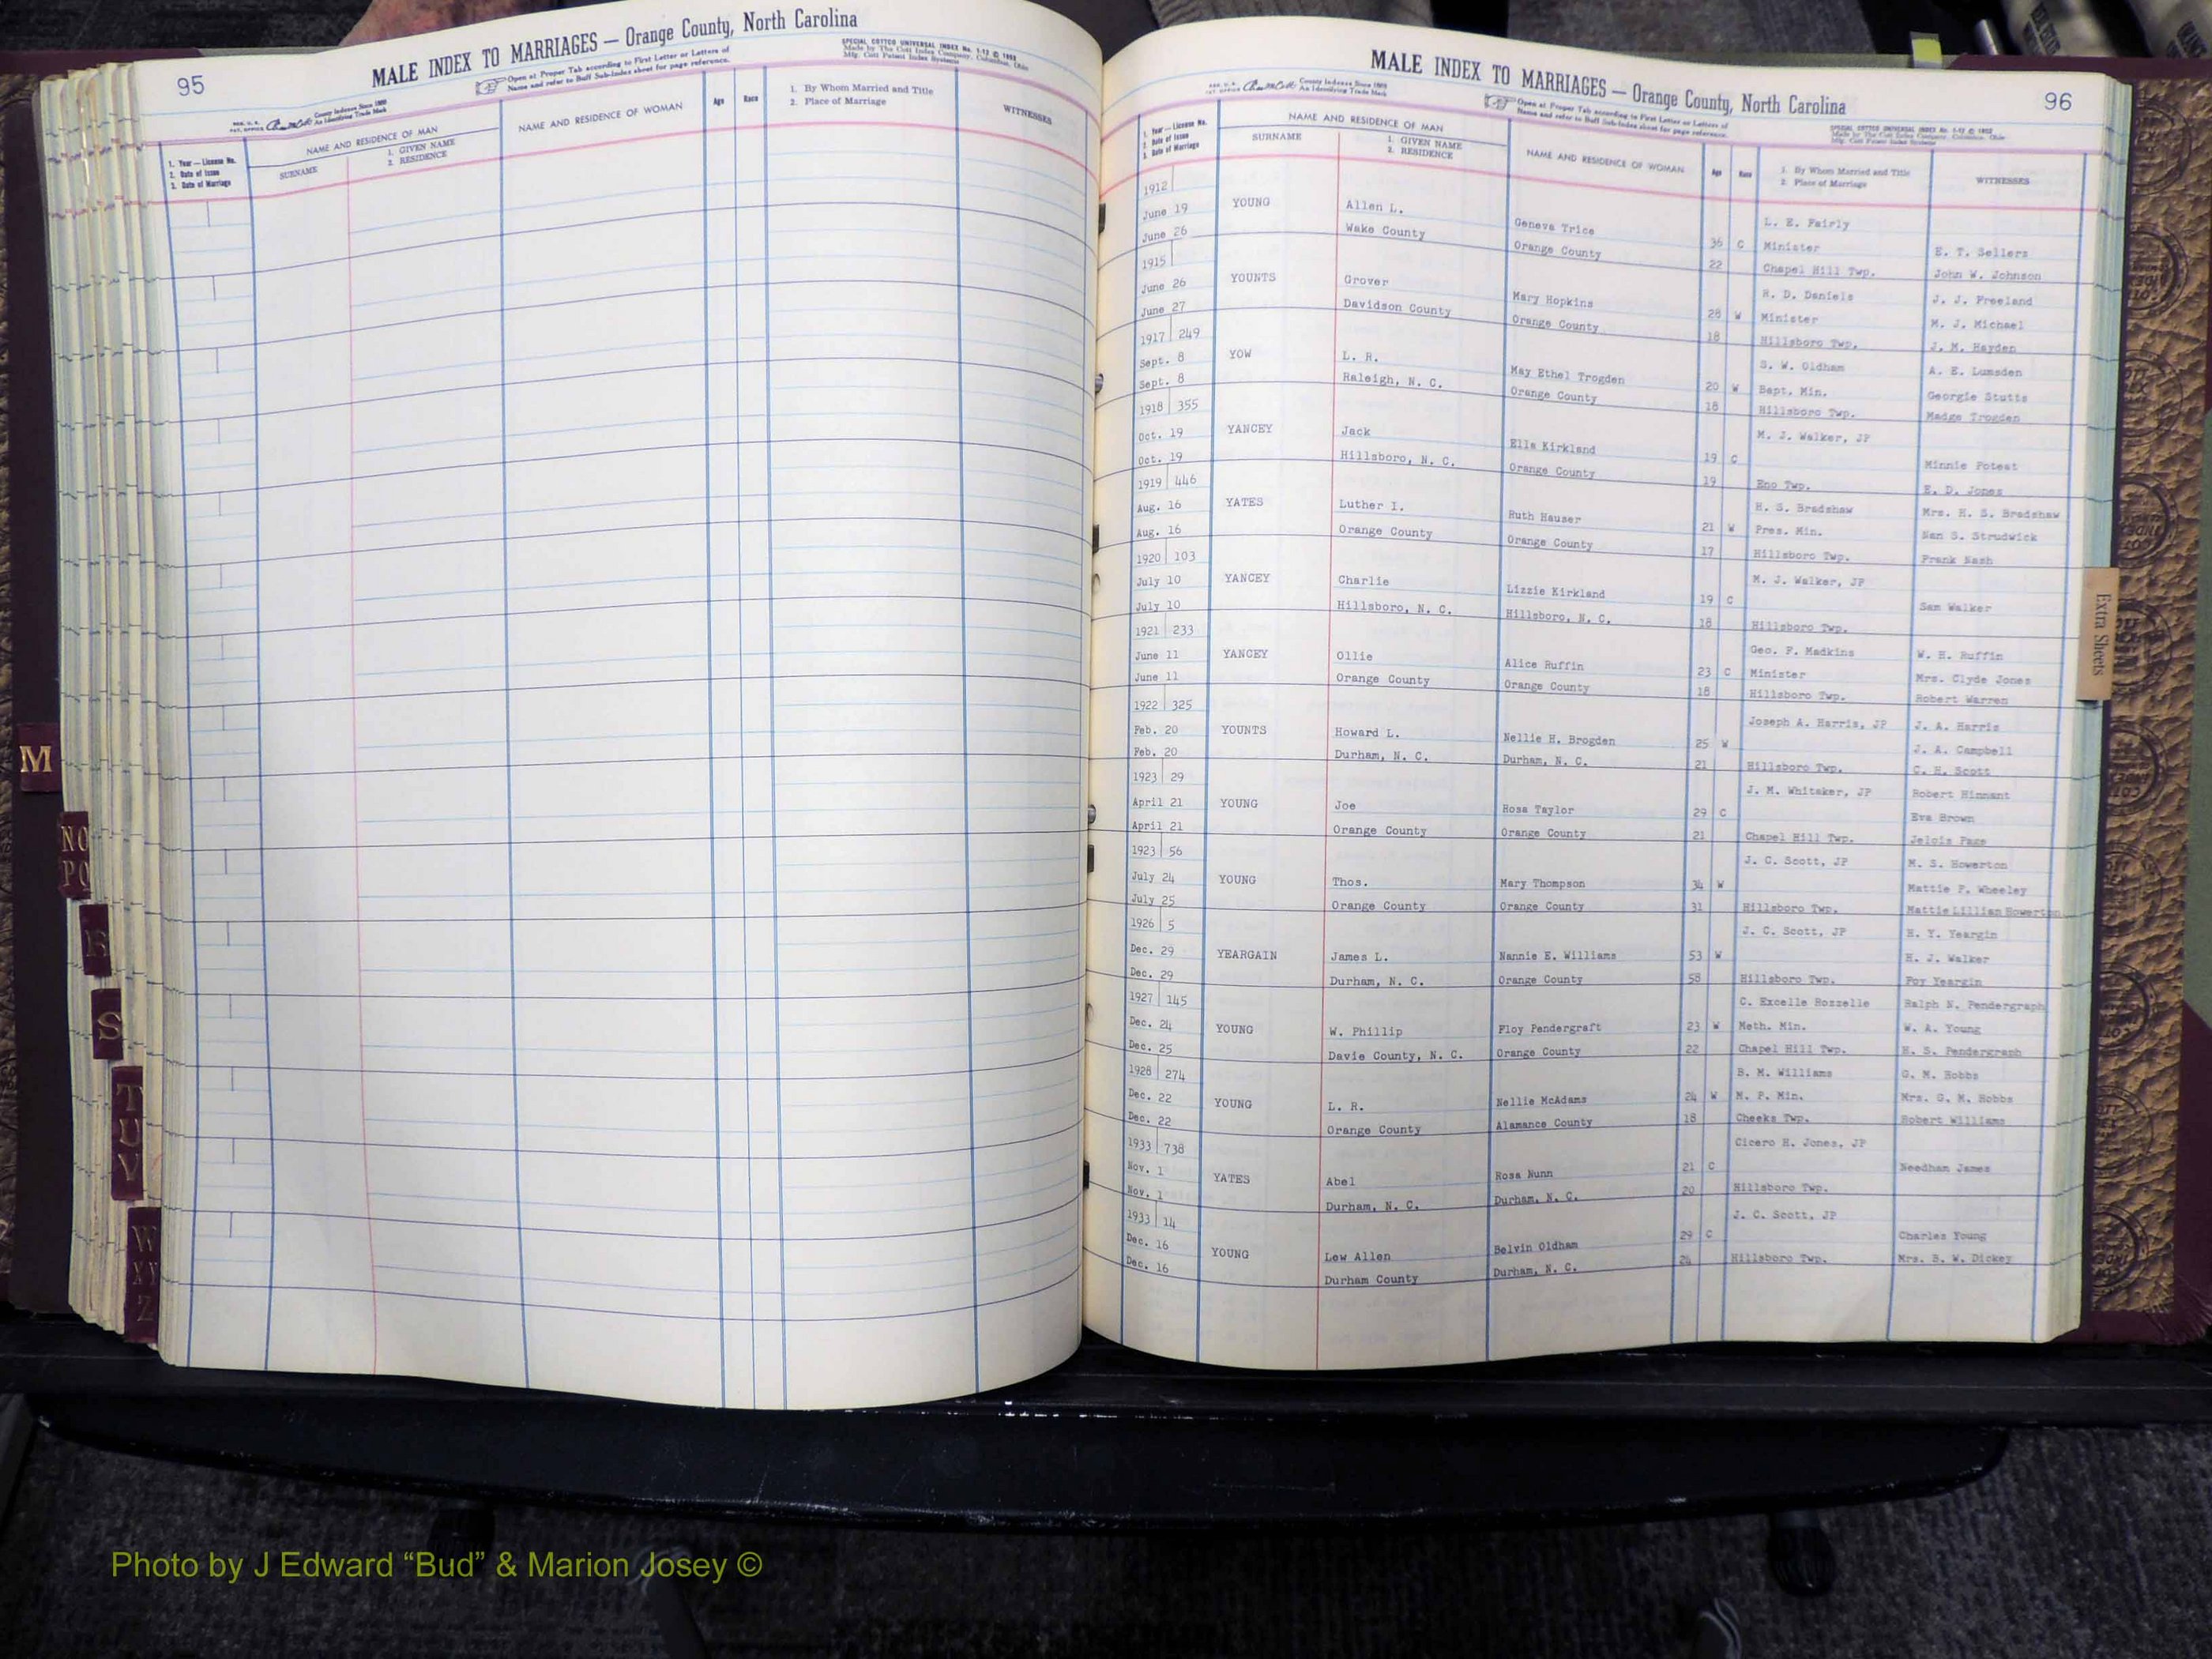 95
MALE INDEX TO MARRIAGES — Orange County, North Carolina
Open at Proper Tab according to First Letter or Letters of
Name and refer to Buff Sub-Index sheet for page reference.
SPECIAL COTTCO UNIVERSAL INDEX No. 1-12 © 1952
Made by The Cott Index Company, Columbus, Ohio
Mfg. Cott Patent Index Systems
County Indexes Since 1888
An Identifying Trade Mark
1. Year — License No.
2. Date of Issue
3. Date of Marriage
NAME AND RESIDENCE OF MAN
SURNAME
1. GIVEN NAME
2. RESIDENCE
NAME AND RESIDENCE OF WOMAN
Age
Race
1. By Whom Married and Title
2. Place of Marriage
WITNESSES
M
NO
PQ
R
S
T
U
V
W
XY
Z
MALE INDEX TO MARRIAGES — Orange County, North Carolina
96
County Indexes Since 1888
An Identifying Trade Mark
Open at Proper Tab according to First Letter or Letters of
Name and refer to Buff Sub-Index sheet for page reference.
SPECIAL COTTCO UNIVERSAL INDEX No. 1-12 © 1952
Made by The Cott Index Company, Columbus, Ohio
Mfg. Cott Patent Index Systems
1. Year — License No.
2. Date of Issue
3. Date of Marriage
NAME AND RESIDENCE OF MAN
SURNAME
1. GIVEN NAME
2. RESIDENCE
NAME AND RESIDENCE OF WOMAN
Age
Race
1. By Whom Married and Title
2. Place of Marriage
WITNESSES
1912 L. E. Fairly
June 19 YOUNG Allen L. Geneva Trice 36 C Minister E. T. Sellers
June 26 Wake County Orange County 22 Chapel Hill Twp. John W. Johnson
1915 R. D. Daniels J. J. Freeland
June 26 YOUNTS Grover Mary Hopkins 28 W Minister M. J. Michael
June 27 Davidson County Orange County 18 Hillsboro Twp. J. M. Hayden
1917 249 S. W. Oldham A. E. Lumsden
Sept. 8 YOW L. R. May Ethel Trogden 20 W Bapt. Min. Georgie Stutts
Sept. 8 Raleigh, N. C. Orange County 18 Hillsboro Twp. Madge Trogden
1918 355 M. J. Walker, JP
Oct. 19 YANCEY Jack Ella Kirkland 19 C Minnie Poteat
Oct. 19 Hillsboro, N. C. Orange County 19 Eno Twp. E. D. Jones
1919 446 H. S. Bradshaw Mrs. H. S. Bradshaw
Aug. 16 YATES Luther I. Ruth Hauser 21 W Pres. Min. Nan S. Strudwick
Aug. 16 Orange County Orange County 17 Hillsboro Twp. Frank Nash
1920 103 M. J. Walker, JP
July 10 YANCEY Charlie Lizzie Kirkland 19 C Sam Walker
July 10 Hillsboro, N. C. Hillsboro, N. C. 18 Hillsboro Twp.
1921 233 Geo. F. Madkins W. H. Ruffin
June 11 YANCEY Ollie Alice Ruffin 23 C Minister Mrs. Clyde Jones
June 11 Orange County Orange County 18 Hillsboro Twp. Robert Warren
1922 325 Joseph A. Harris, JP J. A. Harris
Feb. 20 YOUNTS Howard L. Nellie H. Brogden 25 W J. A. Campbell
Feb. 20 Durham, N. C. Durham, N. C. 21 Hillsboro Twp. C. H. Scott
1923 29 J. M. Whitaker, JP Robert Hinnant
April 21 YOUNG Joe Rosa Taylor 29 C Eva Brown
April 21 Orange County Orange County 21 Chapel Hill Twp. Jelois Page
1923 56 J. C. Scott, JP M. S. Howerton
July 24 YOUNG Thos. Mary Thompson 34 W Mattie P. Wheeley
July 25 Orange County Orange County 31 Hillsboro Twp. Mattie Lillian Howerton
1926 5 J. C. Scott, JP H. Y. Yeargin
Dec. 29 YEARGAIN James L. Nannie E. Williams 53 W H. J. Walker
Dec. 29 Durham, N. C. Orange County 58 Hillsboro Twp. Foy Yeargin
1927 145 C. Excelle Rozzelle Ralph N. Pendergraph
Dec. 24 YOUNG W. Phillip Floy Pendergraft 23 W Meth. Min. W. A. Young
Dec. 25 Davie County, N. C. Orange County 22 Chapel Hill Twp. H. S. Pendergraph
1928 274 B. M. Williams G. M. Hobbs
Dec. 22 YOUNG L. R. Nellie McAdams 24 W M. P. Min. Mrs. G. M. Hobbs
Dec. 22 Orange County Alamance County 18 Cheeks Twp. Robert Williams
1933 738 Cicero H. Jones, JP
Nov. 1 YATES Abel Rosa Nunn 21 C Needham James
Nov. 1 Durham, N. C. Durham, N. C. 20 Hillsboro Twp.
1933 14 J. C. Scott, JP
Dec. 16 YOUNG Lew Allen Belvin Oldham 29 C Charles Young
Dec. 16 Durham County Durham, N. C. 24 Hillsboro Twp. Mrs. B. W. Dickey
Extra Sheets
Photo by J Edward “Bud” & Marion Josey ©